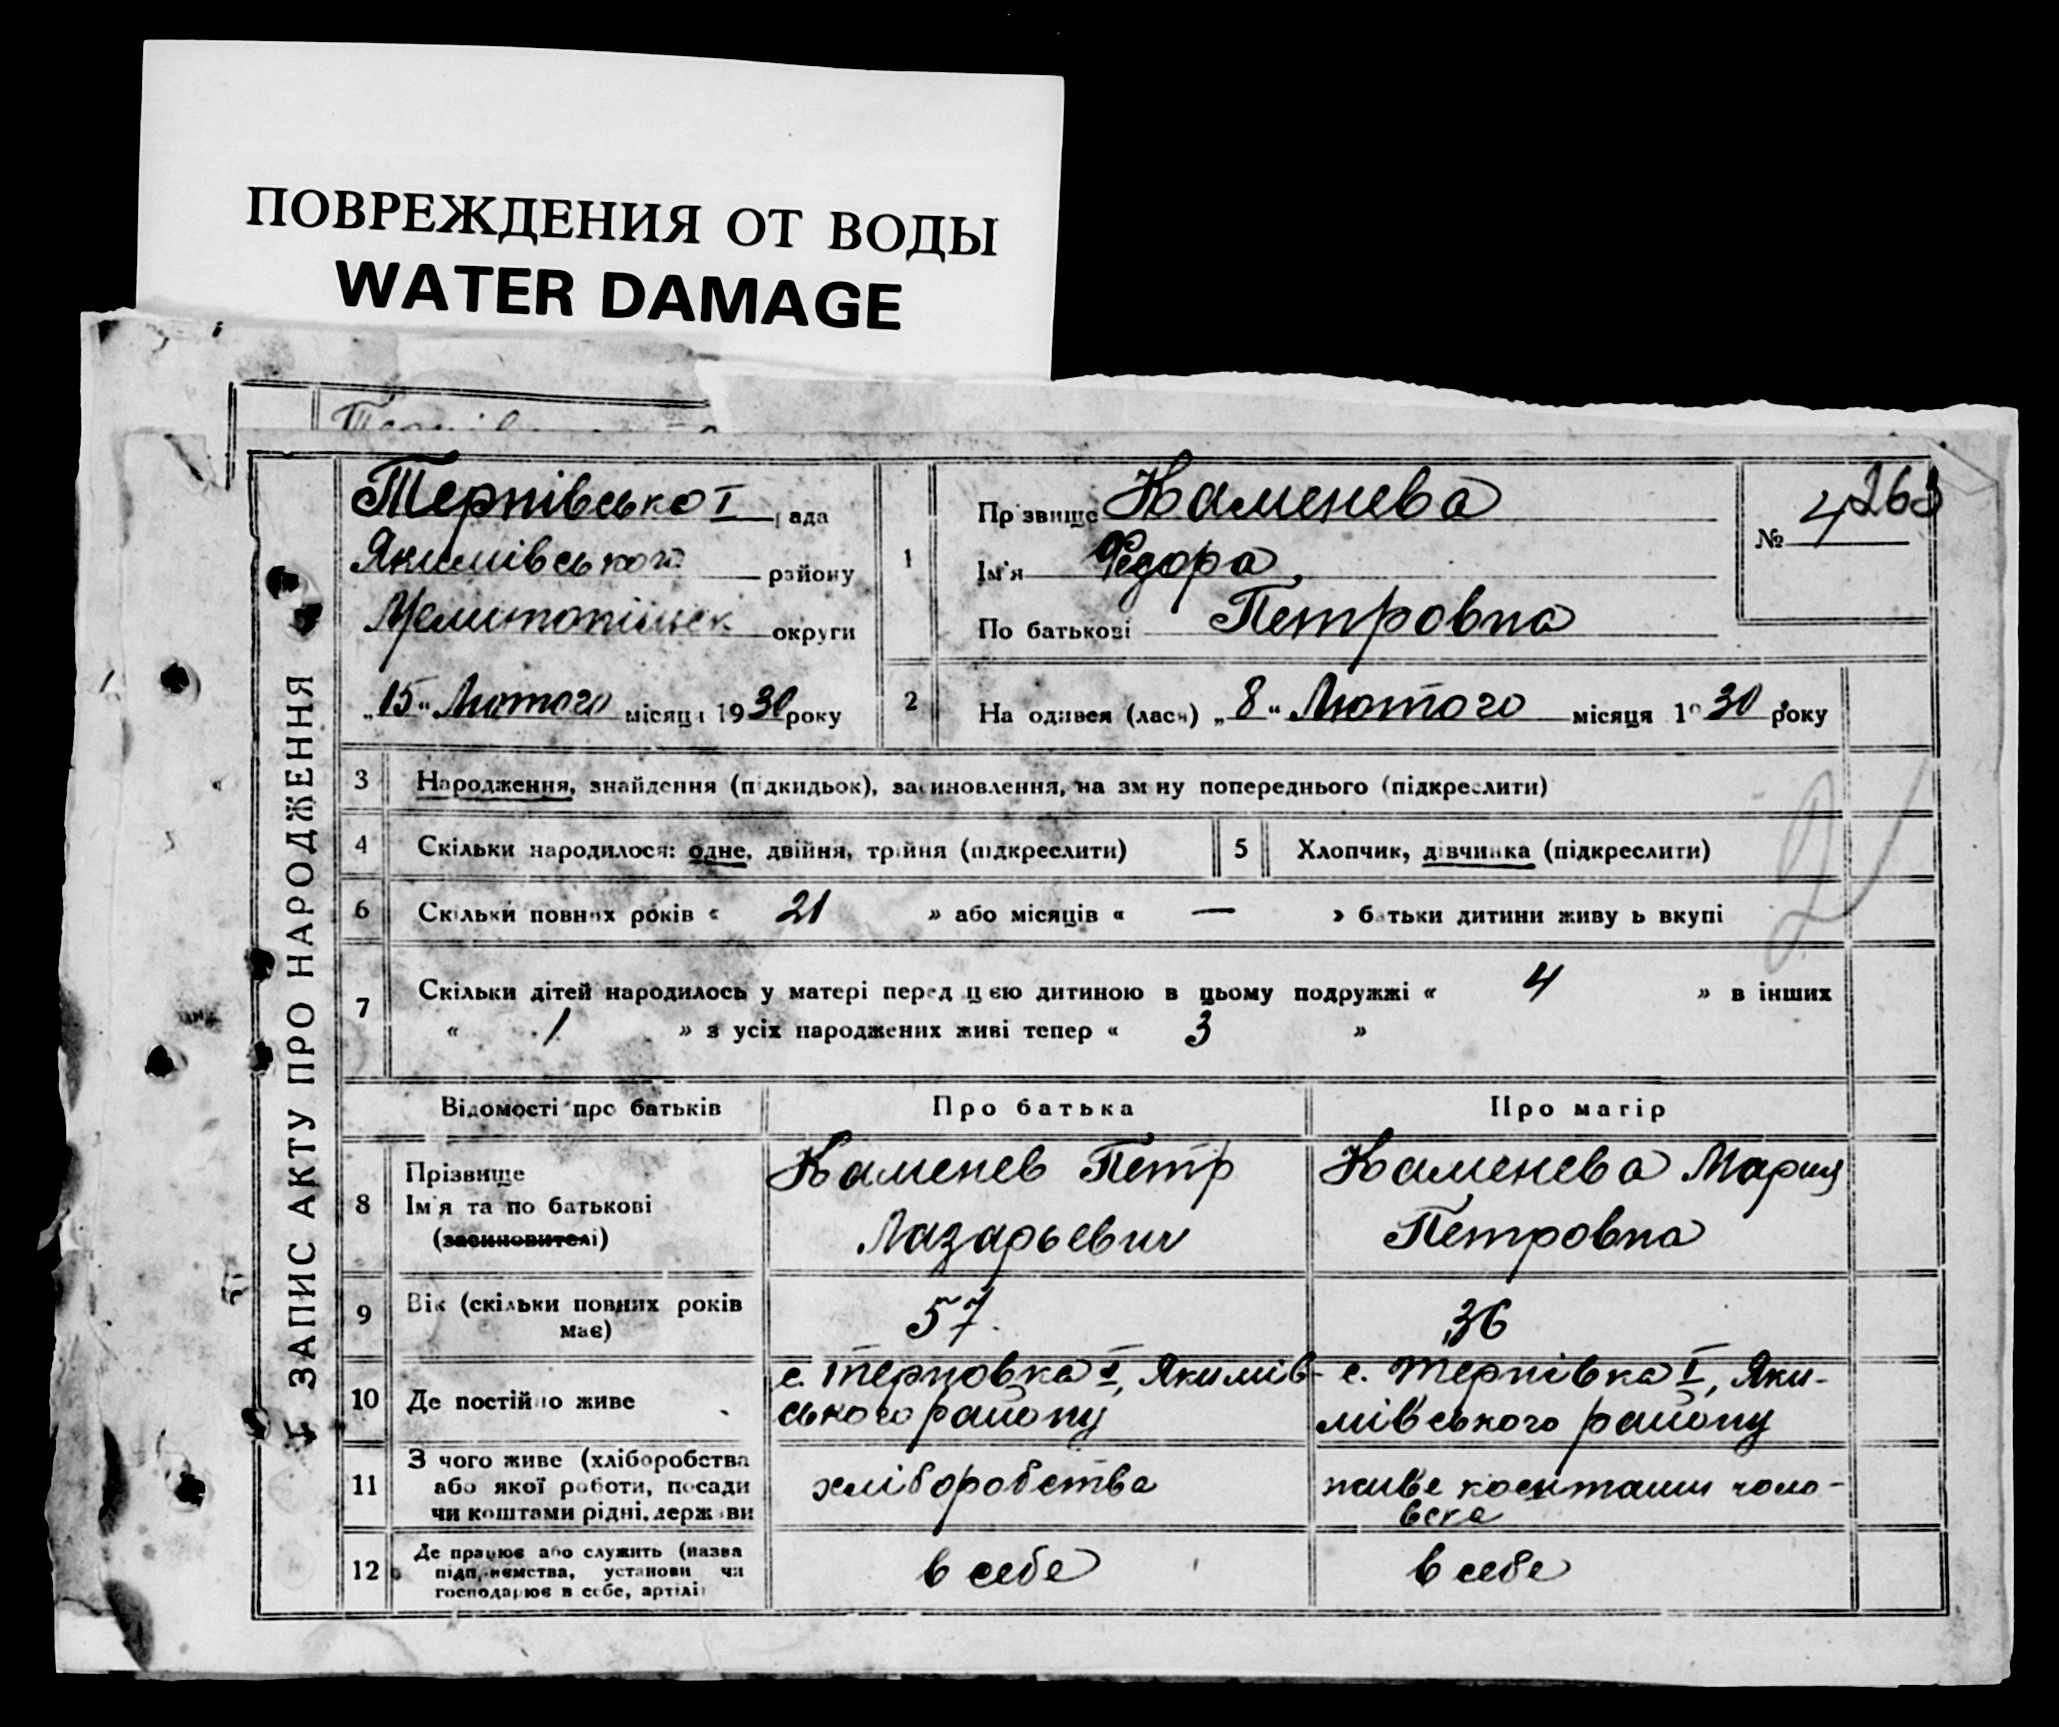 ПОВРЕЖДЕНИЯ ОТ ВОДЫ
WATER DAMAGE
ЗАПИС АКТУ ПРО НАРОДЖЕННЯ
Терпівсько I рада
Якимівського району
Мелитопільськ округи
„15" Лютого місяця 1930 року
1
Прізвище Каменева
Ім'я Федора
По батькові Петровна
№ 4 263
2 На одився (лася) „8" Лютого місяця 1930 року
3 Народження, знайдення (підкидьок), засиновлення, на зміну попереднього (підкреслити)
4 Скільки народилося: одне, двійня, трійня (підкреслити) 5 Хлопчик, дівчинка (підкреслити)
6 Скільки повних років « 21 » або місяців « — » батьки дитини живуть вкупі
7 Скільки дітей народилось у матері перед цією дитиною в цьому подружжі « 4 » в інших
« 1 » з усіх народжених живі тепер « 3 »
2
Відомості про батьків Про батька Про матір
8 Прізвище
Ім'я та по батькові
(засиновителі)
Каменев Петр
Лазарьевич
Каменева Мария
Петровна
9 Вік (скільки повних років
має)
57.
36
10 Де постійно живе
с. Терновка I, Якимів-
ського району
с. Терпівка I, Яки-
мівського району
11 З чого живе (хліборобства
або якої роботи, посади
чи коштами рідні, держави
хліборобства
живе коштами чоло-
века
12 Де працює або служить (назва
підприємства, установи чи
господарює в себе, артілі)
в себе
в себе